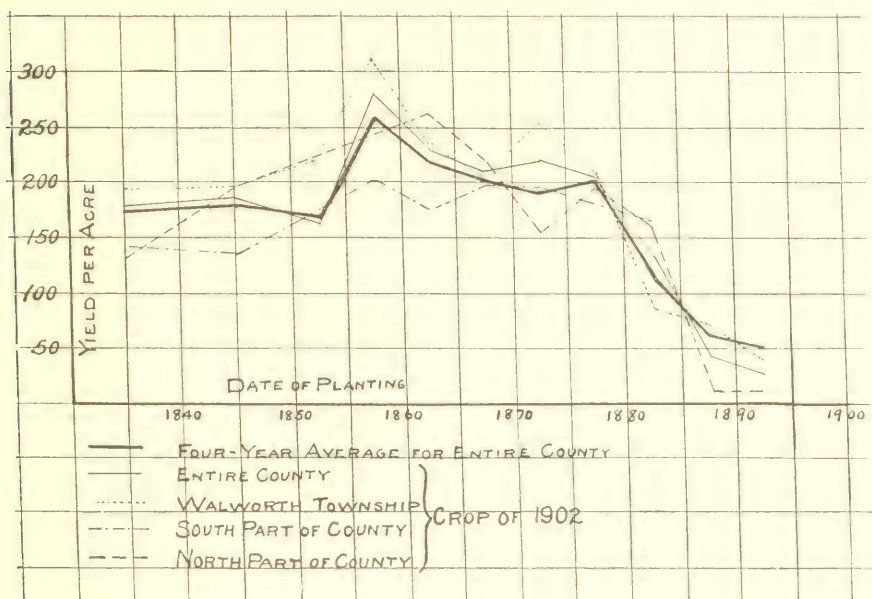 300
250
200
150
100
50
YIELD PER ACRE
DATE OF PLANTING
1840 1850 1860 1870 1880 1890 1900
FOUR-YEAR AVERAGE FOR ENTIRE COUNTY
ENTIRE COUNTY
WALWORTH TOWNSHIP
SOUTH PART OF COUNTY
NORTH PART OF COUNTY
CROP OF 1902